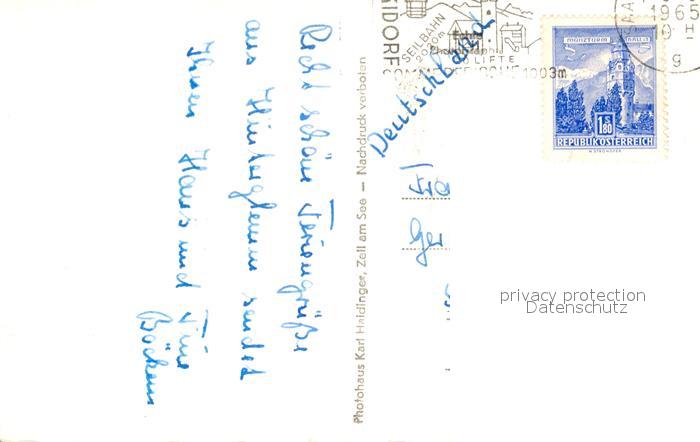 Recht schöne Feriengrüße
aus Hinterglemm sendet
Ihnen Hans und Tine
Böckem
Photohaus Karl Haidinger, Zell am See — Nachdruck verboten
Deutschland
Fr
Ger
SEILBAHN
2020m
LIFTE
1003m
1965
g
MÜNZTURM
HALL I.T.
S 1.80
REPUBLIK ÖSTERREICH
privacy protection
Datenschutz